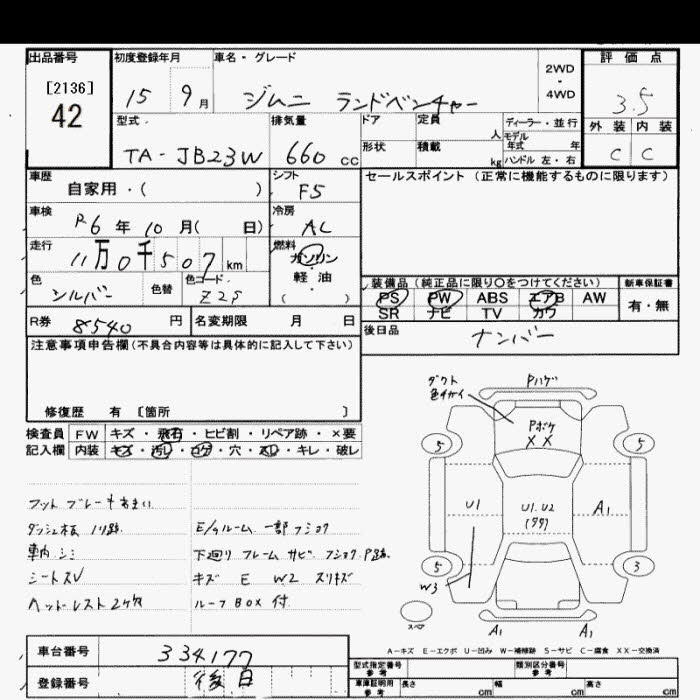 出品番号
[2136]
42
初度登録年月
15 9月
車名・グレード
ジムニ ランドベンチャー
2WD
・
4WD
評価点
3.5
型式
TA-JB23W
排気量
660 cc
ドア
形状
定員
人
積載
kg
ディーラー・並行
モデル
年式 年
ハンドル 左・右
外装 内装
C C
車歴
自家用・( )
シフト
F5
セールスポイント (正常に機能するものに限ります)
車検
R6 年 10 月( 日)
冷房
AC
走行
11万0千507 km
燃料
ガソリン
軽・油
( )
色
シルバー
色替
色コード
Z2S
装備品 (純正品に限り○をつけてください)
PS PW ABS エアB AW
SR ナビ TV カワ
新車保証書
有・無
R券
8540 円
名変期限 月 日
後日品
ナンバー
注意事項申告欄 (不具合内容等は具体的に記入して下さい)
修復歴 有 [箇所 ]
検査員 FW キズ・飛石・ヒビ割・リペア跡・×要
記入欄 内装 キズ・汚レ・コゲ・穴・スレ・キレ・破レ
フットブレーキあまい
ダッシュ板 ノリ跡
車内 シミ
シートSV
ヘッドレスト2ケ欠
E/gルーム 一部フショク
下廻り フレーム サビ フショク P跡
キズ E W2 スリキズ
ルーフBOX付
ダクト
色チガイ
Pハゲ
Pボケ
XX
5
5
U1
U1.U2
A1
5
3
W3
スペア
A1
A1
A-キズ E-エクボ U-凹み W-補修跡 S-サビ C-腐食 XX-交換済
車台番号
334177
登録番号
後日
型式指定番号
参考
類別区分番号
参考
車庫証明用
参考
長さ cm 幅 cm 高さ cm